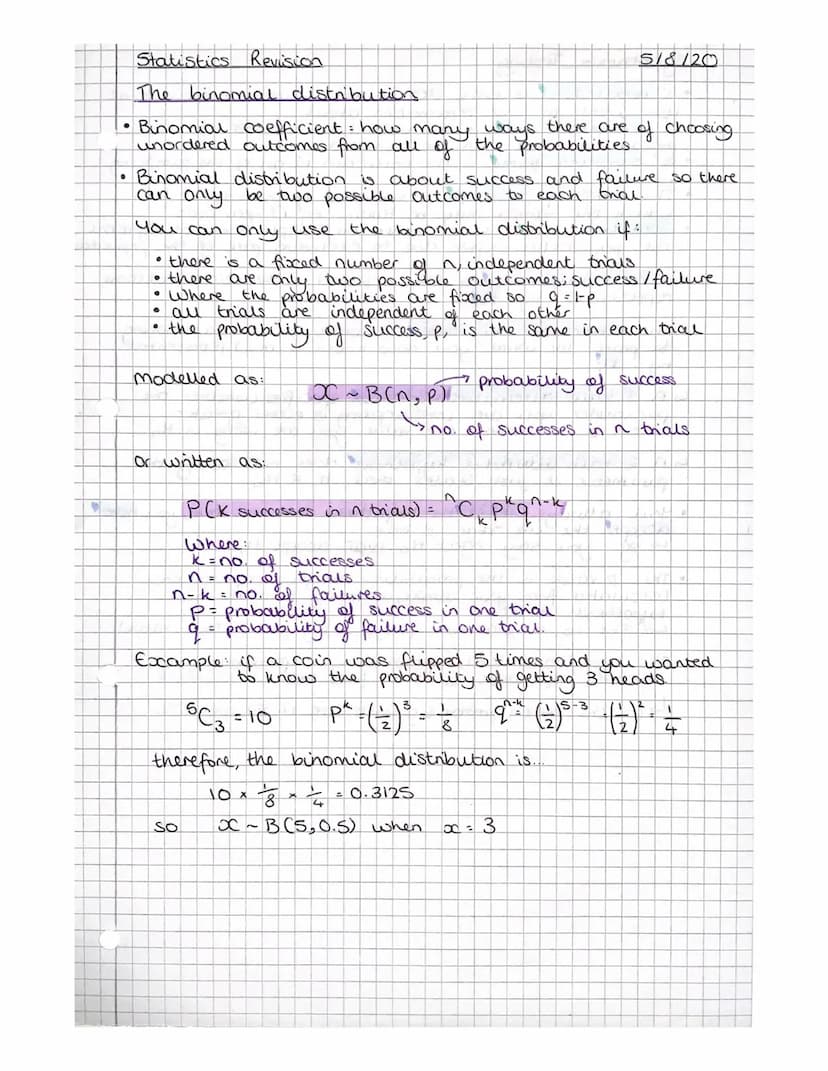 Statistics Revision 5/8/20
The binomial distribution
• Binomial coefficient: how many ways there are of choosing
unordered outcomes from all of the probabilities
• Binomial distribution is about success and failure so there
can only be two possible outcomes to each trial.
You can only use the binomial distribution if:
• there is a fixed number of n, independent trials
• there are only two possible outcomes; success/failure
• where the probabilities are fixed so q=1-p
• all trials are independent of each other
• the probability of success, p, is the same in each trial
Modelled as:
X ~ B(n, p) → probability of success
↳ no. of successes in n trials
or written as:
P(k successes in n trials) = ⁿCₖ pᵏqⁿ⁻ᵏ
Where:
k = no. of successes
n = no. of trials
n-k = no. of failures
p = probability of success in one trial
q = probability of failure in one trial.
Example: if a coin was flipped 5 times and you wanted
to know the probability of getting 3 heads
⁵C₃ = 10 pᵏ = (1/2)³ = 1/8 qⁿ⁻ᵏ = (1/2)⁵⁻³ = (1/2)² = 1/4
therefore, the binomial distribution is...
10 × 1/8 × 1/4 = 0.3125
so x ~ B(5,0.5) when x = 3